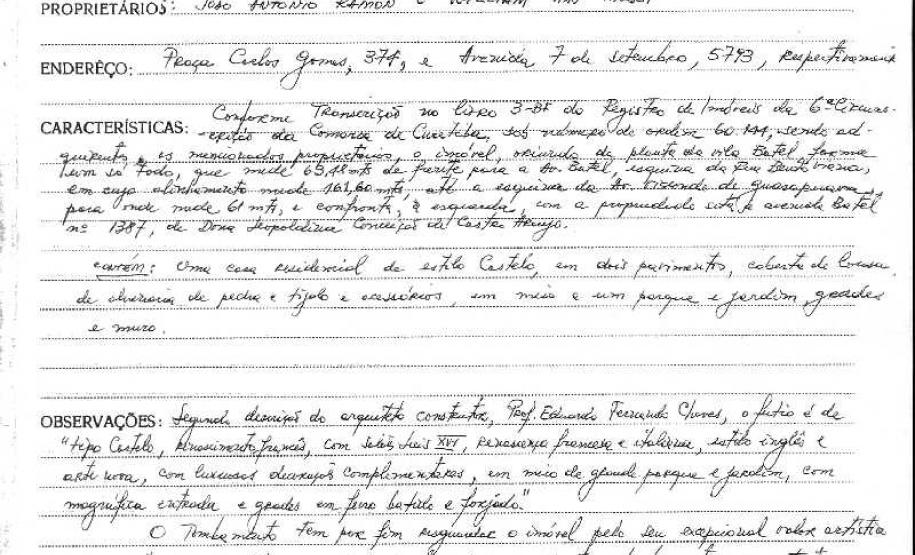 PROPRIETÁRIOS: JOÃO ANTONIO RAMON E
ENDERÊÇO: Praça Carlos Gomes, 374, e Avenida 7 de setembro, 5793, respectivamente
CARACTERÍSTICAS: Conforme Transcrição no livro 3-BF do Registro de Imóveis da 6ª Circuns-
-crição da Comarca de Curitiba, sob número de ordem 60.144, sendo ad-
quirente, os mencionados proprietários, o imóvel, oriundo da planta da vila Batel forma
um só todo, que mede de frente para a Av. Batel, esquina da Rua Bento Viana,
em cujo alinhamento mede 161,60 mts, até a esquina da Av. Visconde de Guarapuava,
para onde mede 61 mts, e confronta, à esquerda, com a propriedade sita à avenida Batel
nº 1387, de Dona Leopoldina Conceição de Castro Araujo.
contém: Uma casa residencial de estilo Castelo, em dois pavimentos, coberta de
de alvenaria de pedra e tijolo e acessórios, em meio a um parque e jardim, grades
e muro.
OBSERVAÇÕES: Segundo descrição do arquiteto construtor, Prof. Eduardo Fernando Chaves, o prédio é de
"tipo Castelo, renascimento francês, com salões Luis XVI, renascença francesa e italiana, estilo inglês e
arte nova, com luxuosas decorações complementares, em meio de grande parque e jardim, com
magnífica entrada e grades em ferro batido e forjado."
O Tombamento tem por fim resguardar o imóvel pelo seu excepcional valor artístico